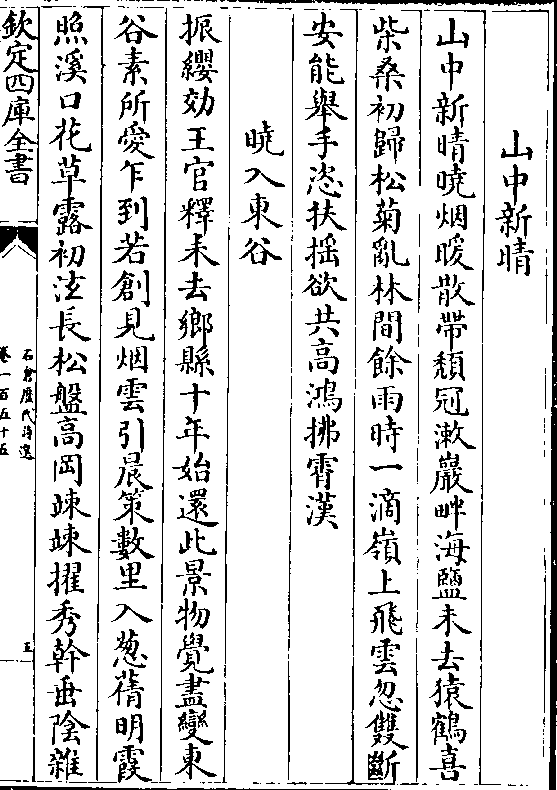 山中新晴
山中新晴曉烟暖散帶頹冠漱巖畔海鹽未去猿鶴喜
柴桑初歸松菊亂林間餘雨時一滴嶺上飛雲忽雙斷
安能舉手恣扶揺欲共高鴻拂霄漢
曉入東谷
振纓効王官釋耒去鄉縣十年始還此景物覺盡變東
谷素所愛乍到若創見烟雲引晨策數里入葱蒨明霞
照溪口花草露初泫長松盤高岡竦竦擢秀幹垂陰雜
欽定四庫全書
石倉歷代詩選
卷一百五十五
五